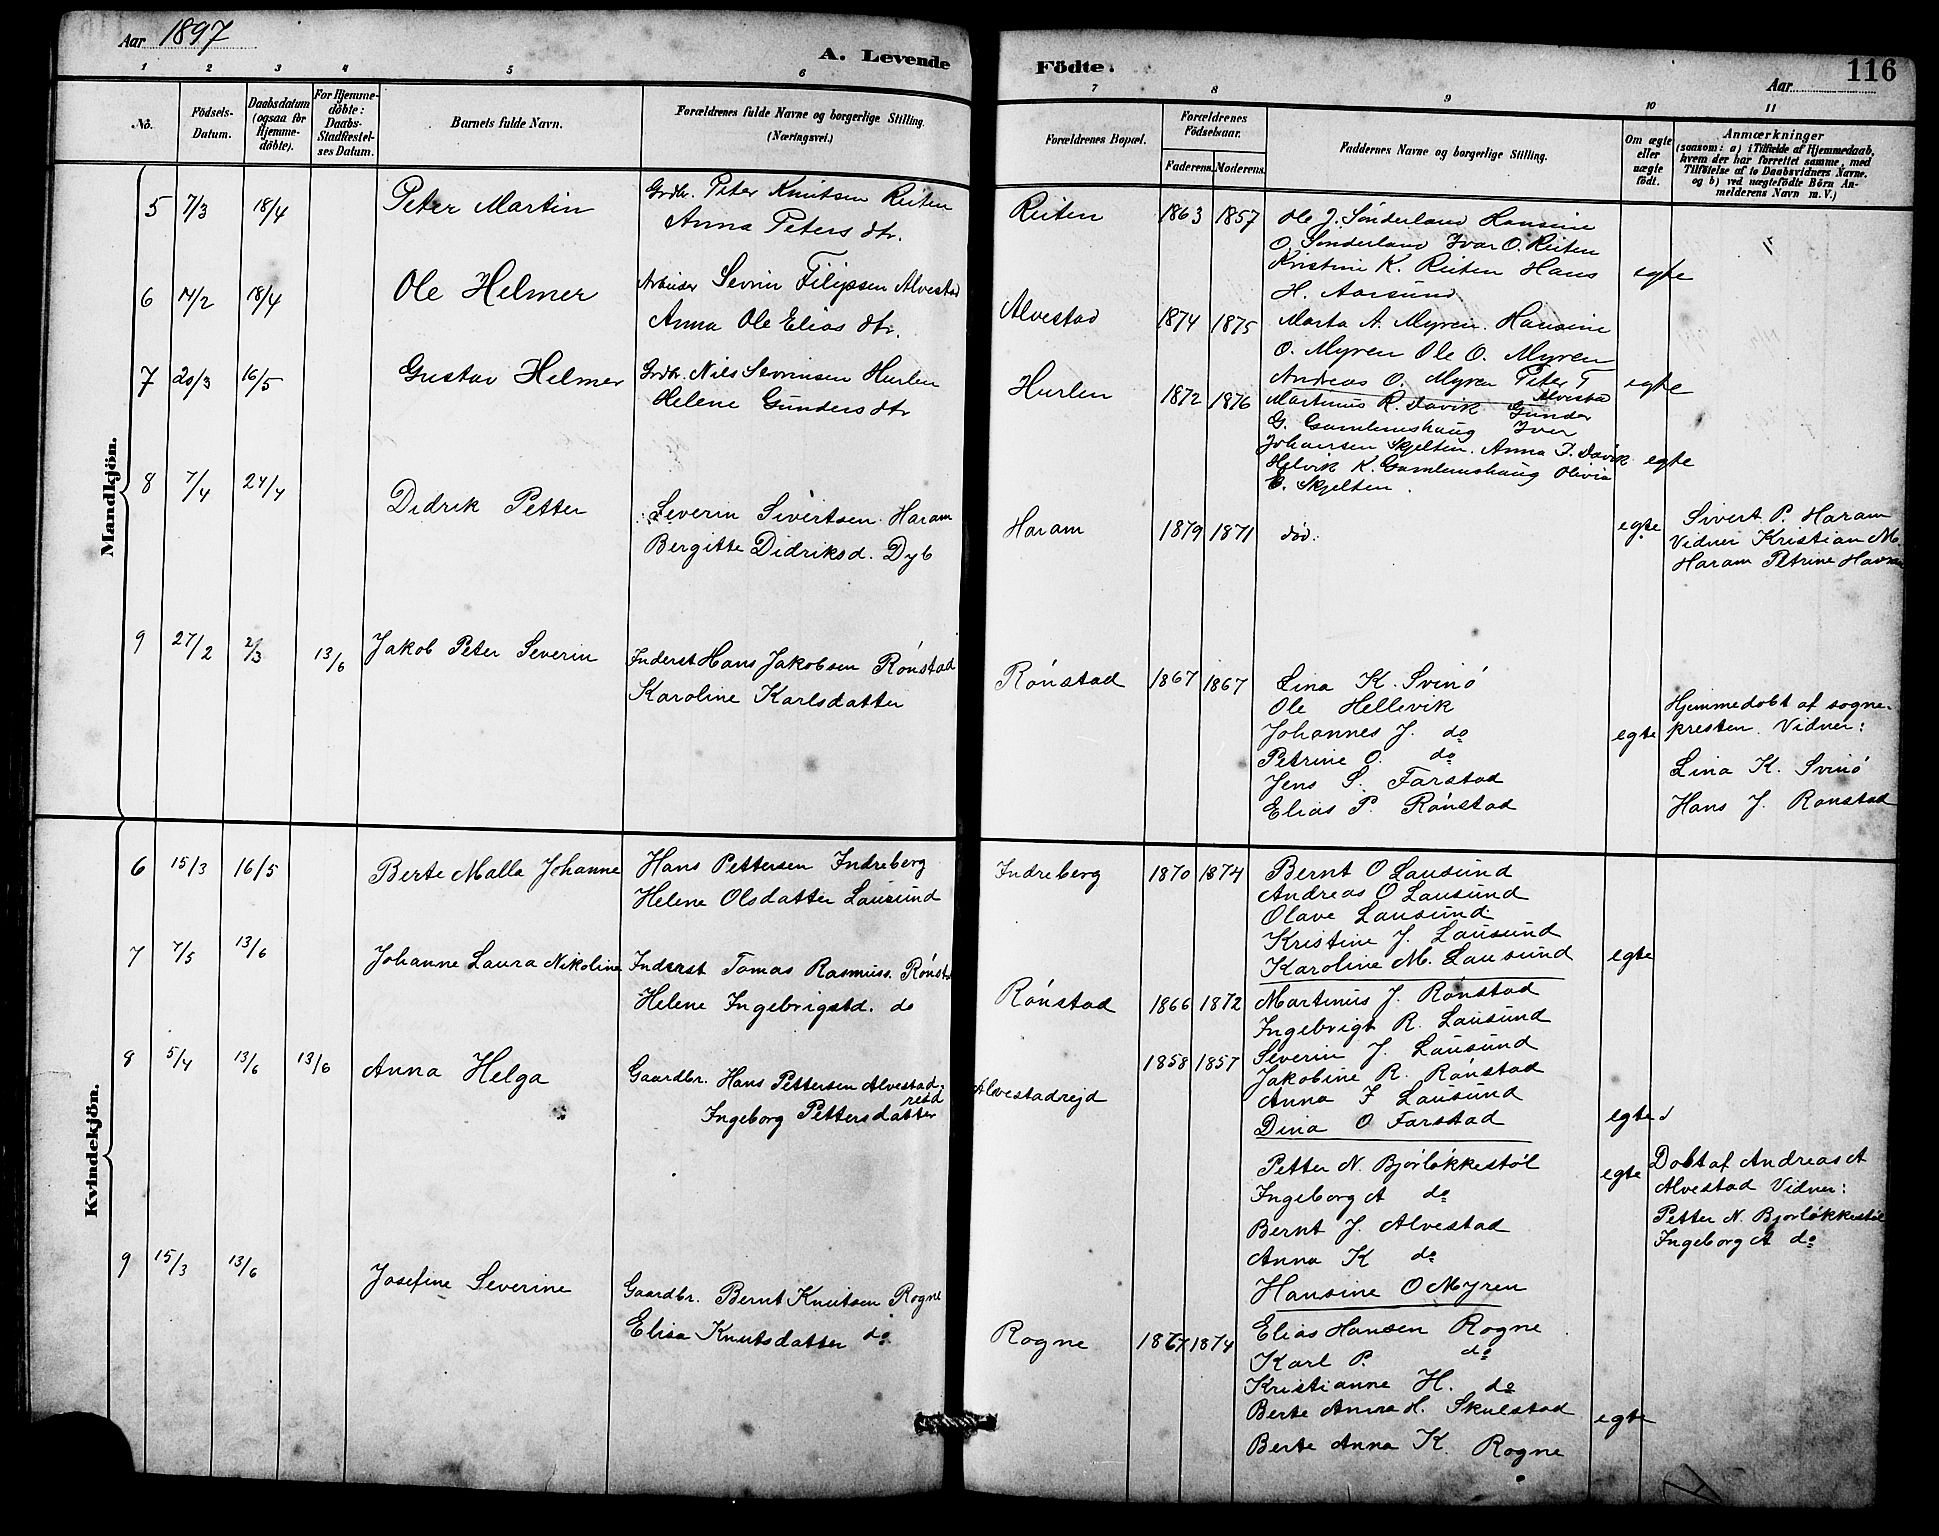 Aar 1897
A. Levende Födte.
Aar 116
1 2 3 4 5 6 7 8 9 10 11
Nô.
Födsels-Datum.
Daabsdatum (ogsaa for Hjemme-döbte).
For Hjemme-döbte: Daabs-Stadfæstel-ses Datum.
Barnets fulde Navn.
Forældrenes fulde Navne og borgerlige Stilling. (Næringsvei.)
Forældrenes Bopæl.
Forældrenes Födselsaar.
Faderens. Moderens.
Faddernes Navne og borgerlige Stilling.
Om ægte eller uægte födt.
Anmærkninger
(saasom: a) i Tilfælde af Hjemmedaab, hvem der har forrettet samme, med Tilföielse af to Daabsvidners Navne. og b) ved uægtefödte Börn An-melderens Navn m. V.)
Mandkjön.
5 7/3 18/4 Peter Martin
Grdbr. Peter Knutsen Reiten
Anna Peters dtr.
Reiten 1863 1857
Ole J. Sönderland Hansine
O. Sönderland Ivar O. Reiten
Kristine K. Reiten Hans
H. Aarsund
egte
6 14/2 18/4 Ole Helmer
Arbeider Sevrin Filipsen Alvestad
Anna Ole Elias dtr.
Alvestad 1874 1875
Marta A. Myren. Hansine
O. Myren Ole O. Myren
Andreas O. Myren Peter T
Alvestad
egte
7 20/3 16/5 Gustav Helmer
Grdbr. Nils Sevrinsen Hurlen
Helene Gunders dtr
Hurlen 1872 1876
Martinus R. Davik Gunder
G. Gamlemshaug Iver
Johansen Skjelten. Anna I. Davik
Helvik K. Gamlemshaug Olivia
E. Skjelten.
egte
8 7/4 24/4 Didrik Petter
Severin Sivertsen Haram
Bergitte Didriksd. Dyb
Haram 1879 1871 död.
egte
Sivert P. Haram
Vidner Kristian M.
Haram Petrine Haram
9 27/2 2/3 13/6 Jakob Peter Severin
Inderst Hans Jakobsen Rönstad
Karoline Karlsdatter
Rönstad 1867 1867
Lina K. Svinö
Ole Hellevik
Johannes J. do
Petrine O. do
Jens S. Farstad
Elias P. Rönstad
egte
Hjemmedöbt af sogne-
presten. Vidner:
Lina K. Svinö
Hans J. Rönstad
Kvindekjön.
6 15/3 16/5 Berte Malla Johanne
Hans Pettersen Indreberg
Helene Olsdatter Lausund
Indreberg 1870 1874
Bernt O Lausund
Andreas O Lausund
Olave Lausund
Kristine J. Lausund
Karoline M. Lausund
egte
7 7/5 13/6 Johanne Laura Nikoline
Inderst Tomas Rasmuss. Rönstad
Helene Ingebrigstd. do
Rönstad 1866 1872
Martinus J. Rönstad
Ingebrigt R. Lausund
Severin J. Lausund
Jakobine R. Rönstad
Anna I Lausund
Dina O Farstad
egte
8 5/4 13/6 13/6 Anna Helga
Gaardbr. Hans Pettersen Alvestad-
reid
Ingeborg Pettersdatter
Alvestadrejd 1858 1857
Petter N. Bjørløkkestøl
Ingeborg A do
Bernt J. Alvestad
Anna K do
Hansine O Myren
egte
Döbt af Andreas A
Alvestad Vidner:
Petter N. Bjorløkkestøl
Ingeborg A do
9 15/3 13/6 Josefine Severine
Gaardbr. Bernt Knutsen Rogne
Elisa Knutsdatter do
Rogne 1867 1874
Elias Hansen Rogne
Karl P. do
Kristianne H. do
Berte Anna H. Skulstad
Berte Anna K. Rogne
egte